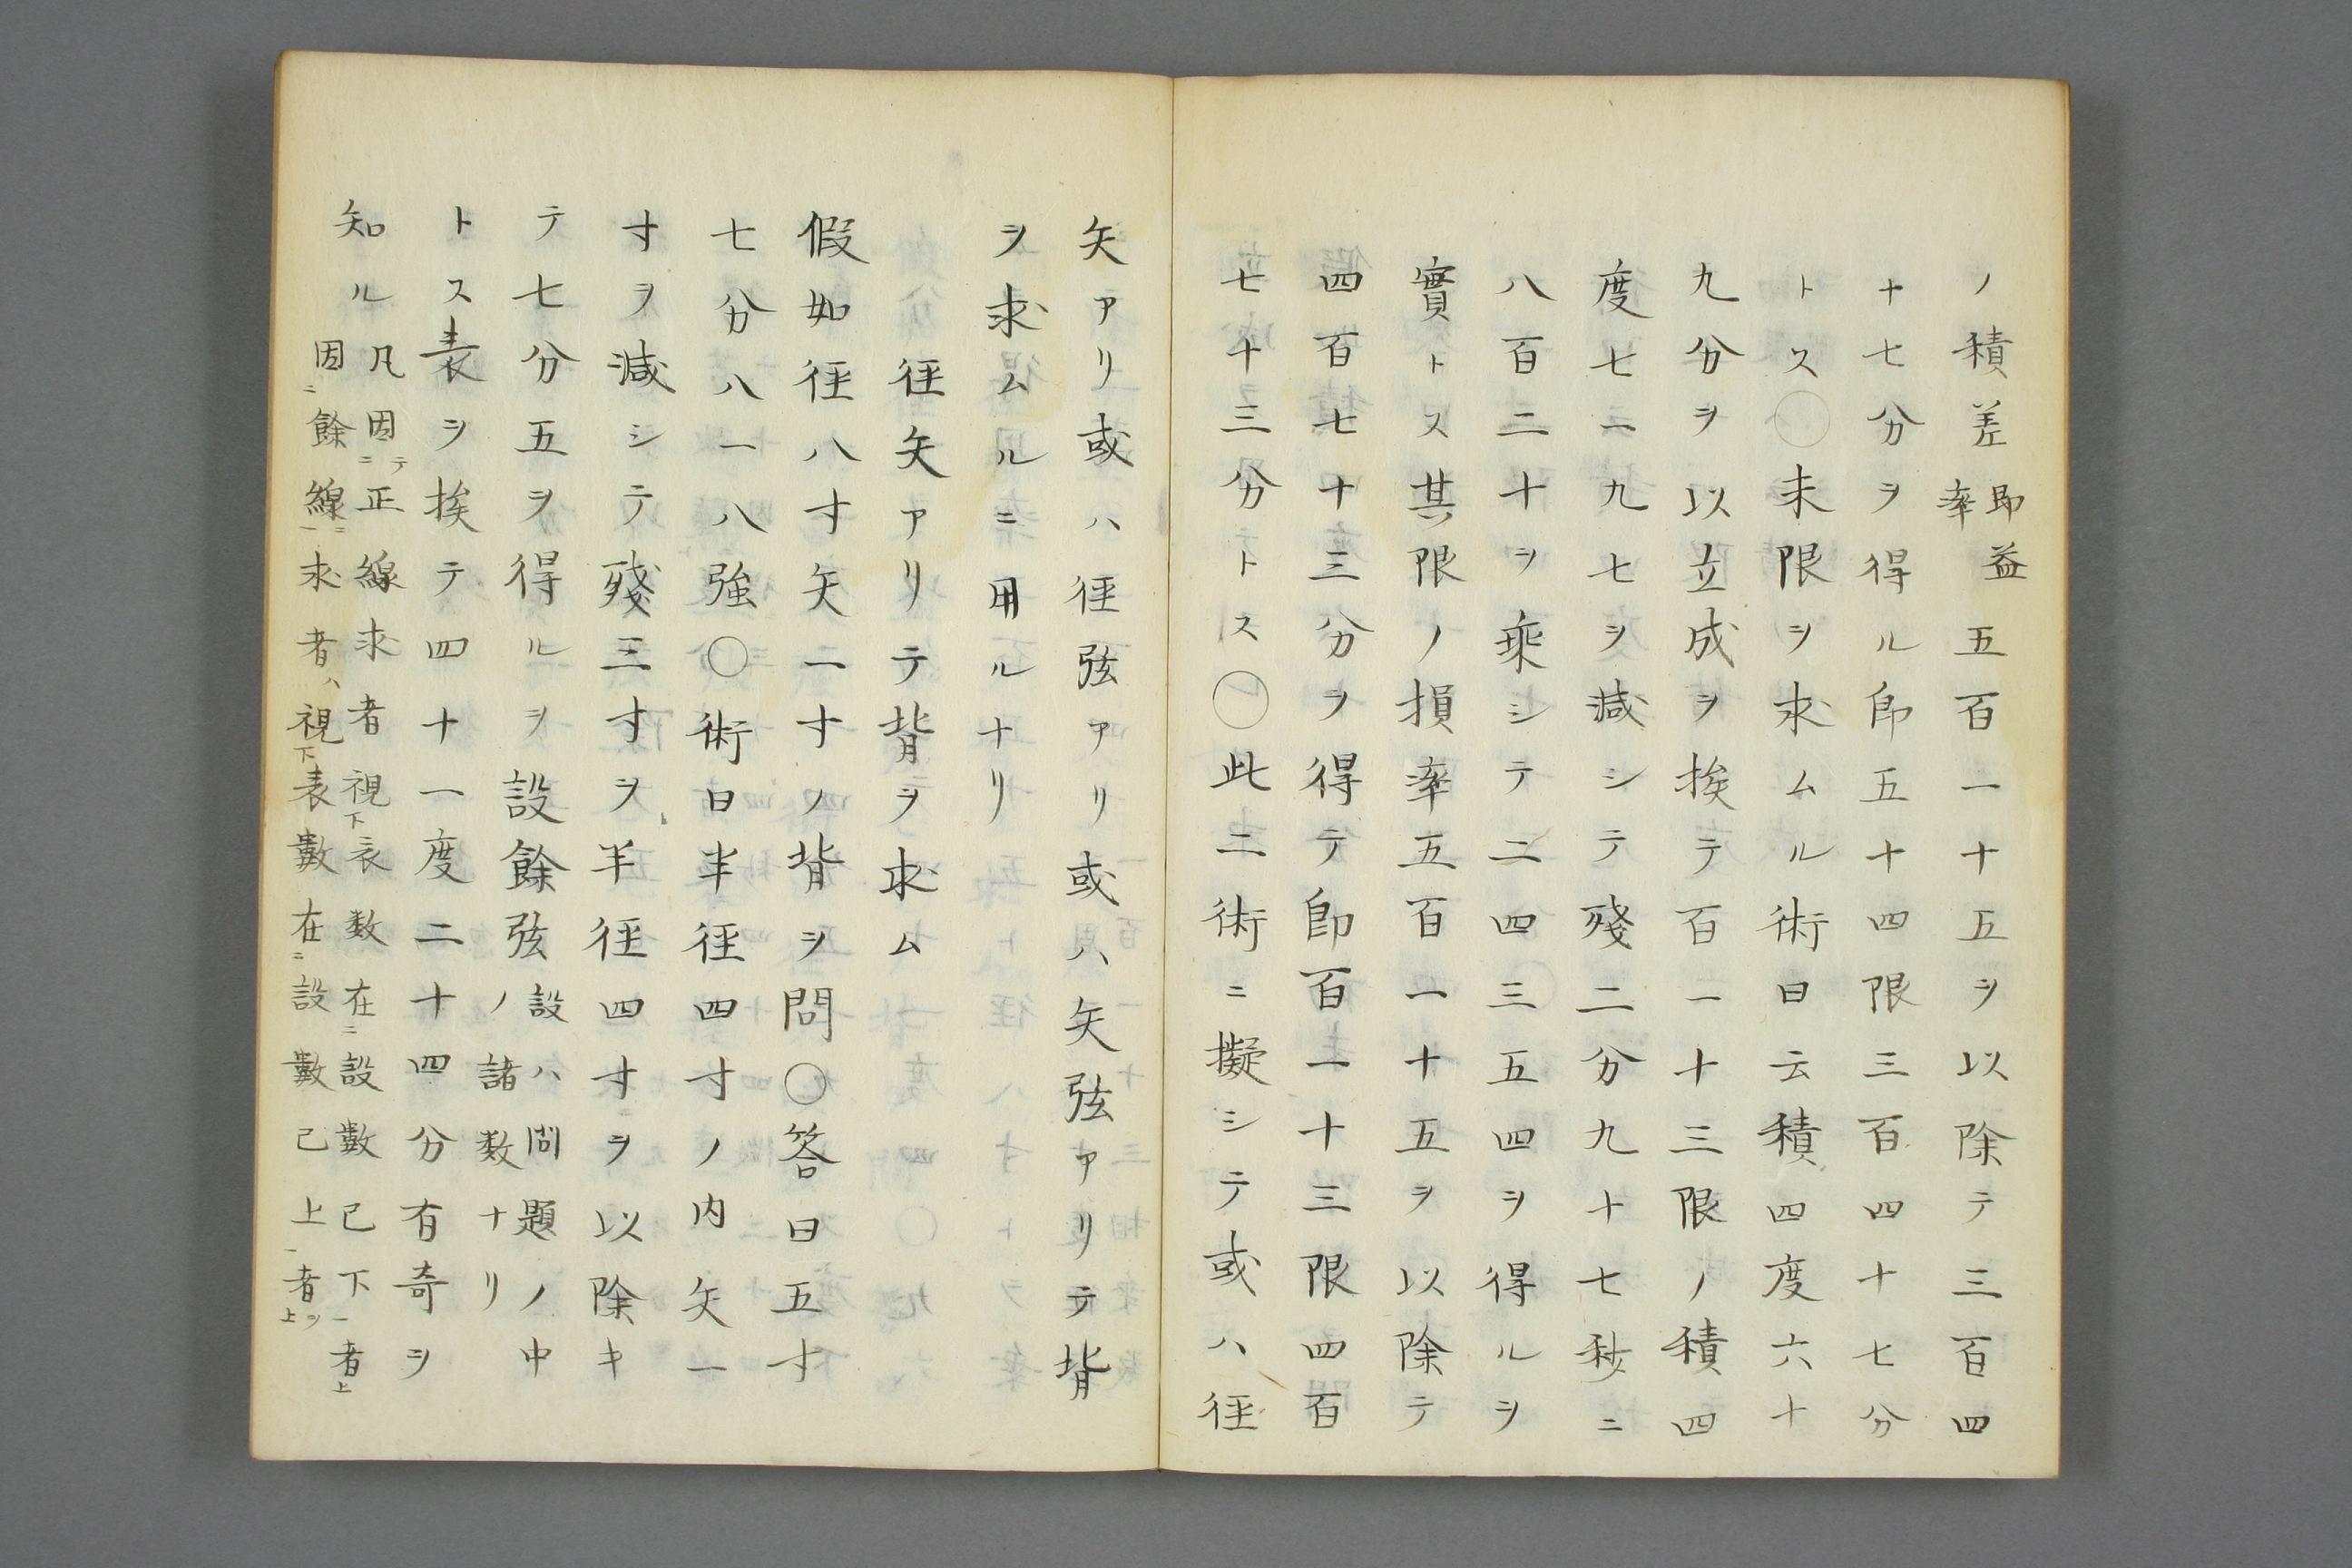 ノ積差即益率五百一十五ヲ以除テ三百四
十七分ヲ得ル即五十四限三百四十七分
トス〇末限ヲ求ムル術曰云積四度六十
九分ヲ以立成ヲ挨テ百一十三限ノ積四
度七二九七ヲ減シテ残二分九十七秒ニ
八百二十ヲ乗シテ二四三五四ヲ得ルヲ
實トス其限ノ損率五百一十五ヲ以除テ
四百七十三分ヲ得テ即百一十三限四百
七十三分トス〇此二術ニ擬シテ或ハ径
矢アリ或ハ径弦アリ或ハ矢弦アリテ背
ヲ求ムルニ用ルナリ
径矢アリテ背ヲ求ム
假如径八寸矢一寸ノ背ヲ問〇答曰五寸
七分八一八強〇術曰半径四寸ノ内矢一
寸ヲ減シテ残三寸ヲ半径四寸ヲ以除キ
テ七分五ヲ得ルヲ設餘弦ノ設ハ問題ノ中諸数ナリ
トス表ヲ挨テ四十一度二十四分有奇ヲ
知ル凡因テ正線ニ求者視下表数在ニ設數已下一者上
因ニ餘線ニ一求者ハ視下表數在ニ設數已上一者ヲ上